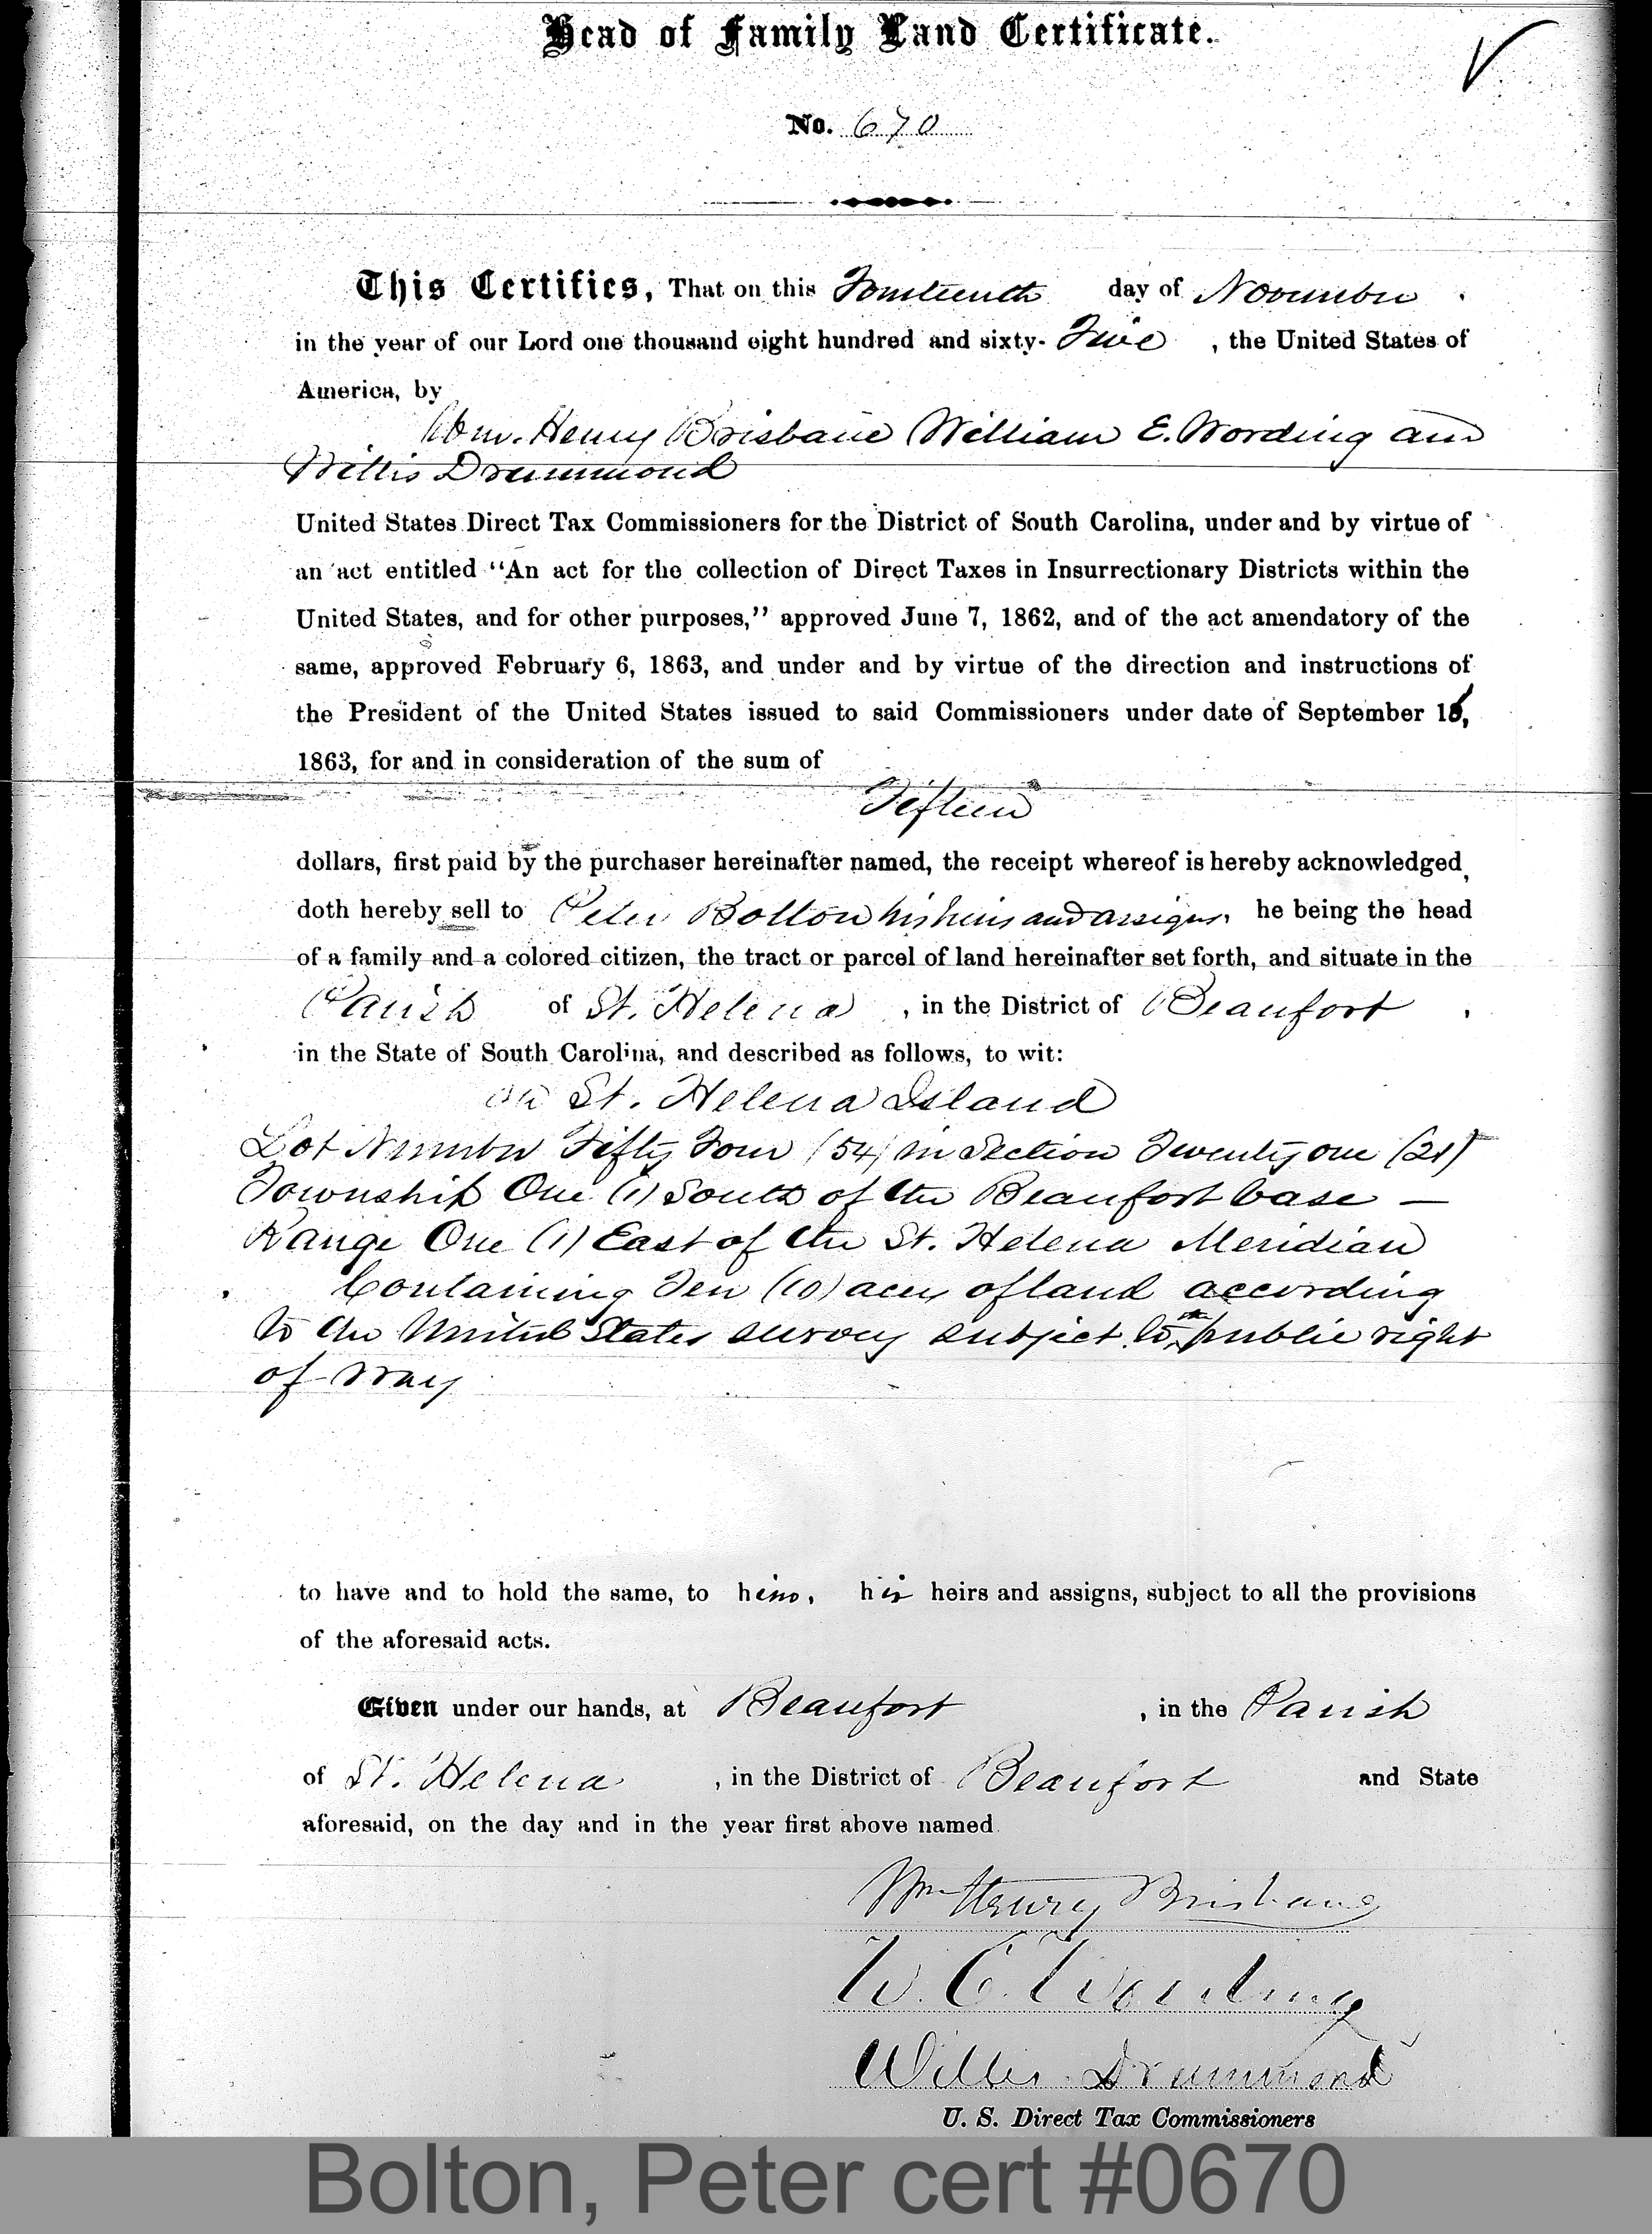 Head of Family Land Certificate.
No. 670
This Certifies, That on this Fourteenth day of November
in the year of our Lord one thousand eight hundred and sixty-Five, the United States of
America, by
Wm. Henry Brisbane William E. Wording and
Willis Drummond
United States Direct Tax Commissioners for the District of South Carolina, under and by virtue of
an act entitled "An act for the collection of Direct Taxes in Insurrectionary Districts within the
United States, and for other purposes," approved June 7, 1862, and of the act amendatory of the
same, approved February 6, 1863, and under and by virtue of the direction and instructions of
the President of the United States issued to said Commissioners under date of September 16,
1863, for and in consideration of the sum of
Fifteen
dollars, first paid by the purchaser hereinafter named, the receipt whereof is hereby acknowledged,
doth hereby sell to Peter Bolton his heirs and assigns, he being the head
of a family and a colored citizen, the tract or parcel of land hereinafter set forth, and situate in the
Parish of St. Helena, in the District of Beaufort,
in the State of South Carolina, and described as follows, to wit:
on St. Helena Island
Lot Number Fifty Four (54) in Section Twenty one (21)
Township One (1) South of the Beaufort base —
Range One (1) East of the St. Helena Meridian
Containing Ten (10) acres of land according
to the United States survey subject to the public right
of way
to have and to hold the same, to him, his heirs and assigns, subject to all the provisions
of the aforesaid acts.
Given under our hands, at Beaufort, in the Parish
of St. Helena, in the District of Beaufort and State
aforesaid, on the day and in the year first above named
Wm Henry Brisbane
W. E. Wording
Willis Drummond
U. S. Direct Tax Commissioners
Bolton, Peter cert #0670